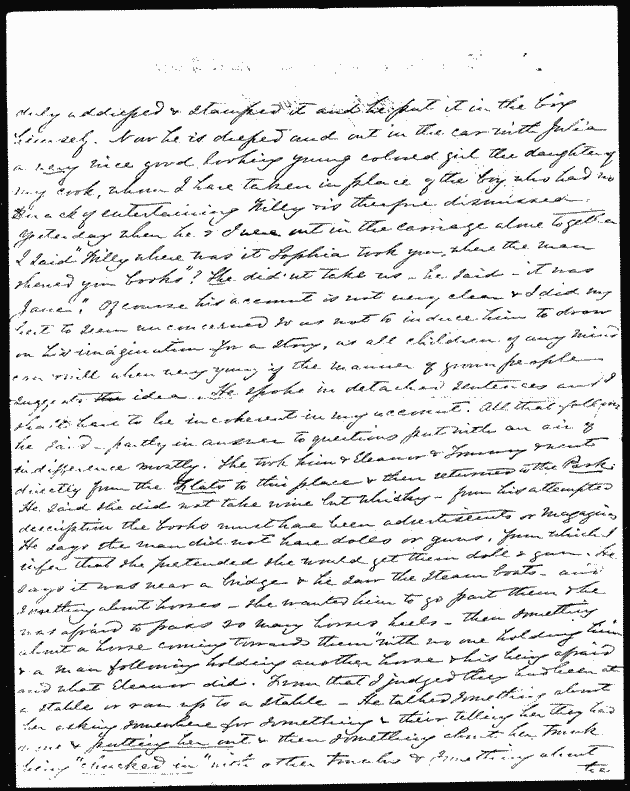 duly addressed & stamped it and he put it in the box
himself. Now he is dressed and out in the car with Julia
a very nice good looking young colored girl the daughter of
my cook, whom I have taken in place of the boy who had no
knack of entertaining Willy & is therefore dismissed.
Yesterday when he & I were out in the carriage alone together
I said "Willy where was it Sophia took you, where the man
showed you books"? She did'nt take us - he said - it was
Jane." Of course his account is not very clear & I did my
best to seem unconcerned so as not to induce him to draw
on his imagination for a story, as all children of any mind
can & will when very young if the manner of grown people
suggests the idea. He spoke in detached sentences and I
shall have to be incoherent in my account. All that follows
he said - partly in answer to questions put with an air of
indifference mostly. She took him & Eleanor & Tommy & went
directly from the Flats to this place & then returned to the Park.
He said she did not take wine but whiskey - from his attempted
description the books must have been advertisements or Magazines
He says the man did not have dolls or guns, from which I
infer that she pretended she would get them doll & gun. He
says it was near a bridge & he saw the steam boats - and
something about horses - she wanted him to go past them & he
was afraid to pass so many horses heels - then something
about a horse coming towards them "with no one holding him
& a man following holding another horse & his being afraid
and what Eleanor did. From that I judged they had been at
a stable or ran up to a stable - He talked something about
her asking somewhere for something & their telling her they had
none & putting her out & then something about her trunk
being "chucked in" with other trunks & something about
the